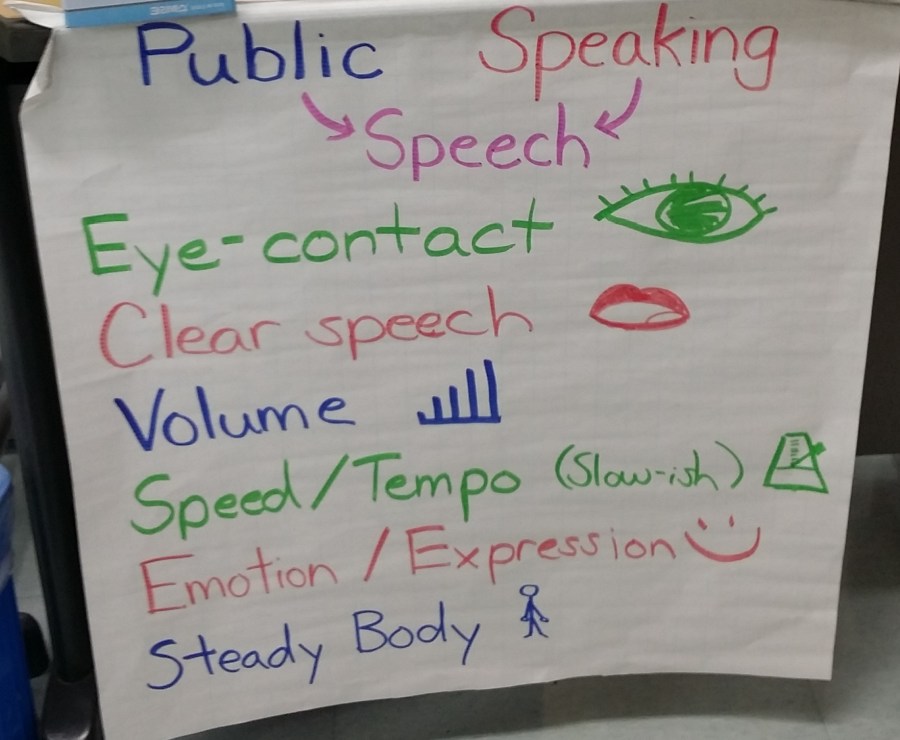 Public Speaking
Speech
Eye-contact
Clear speech
Volume
Speed/Tempo (Slow-ish)
Emotion / Expression
Steady Body